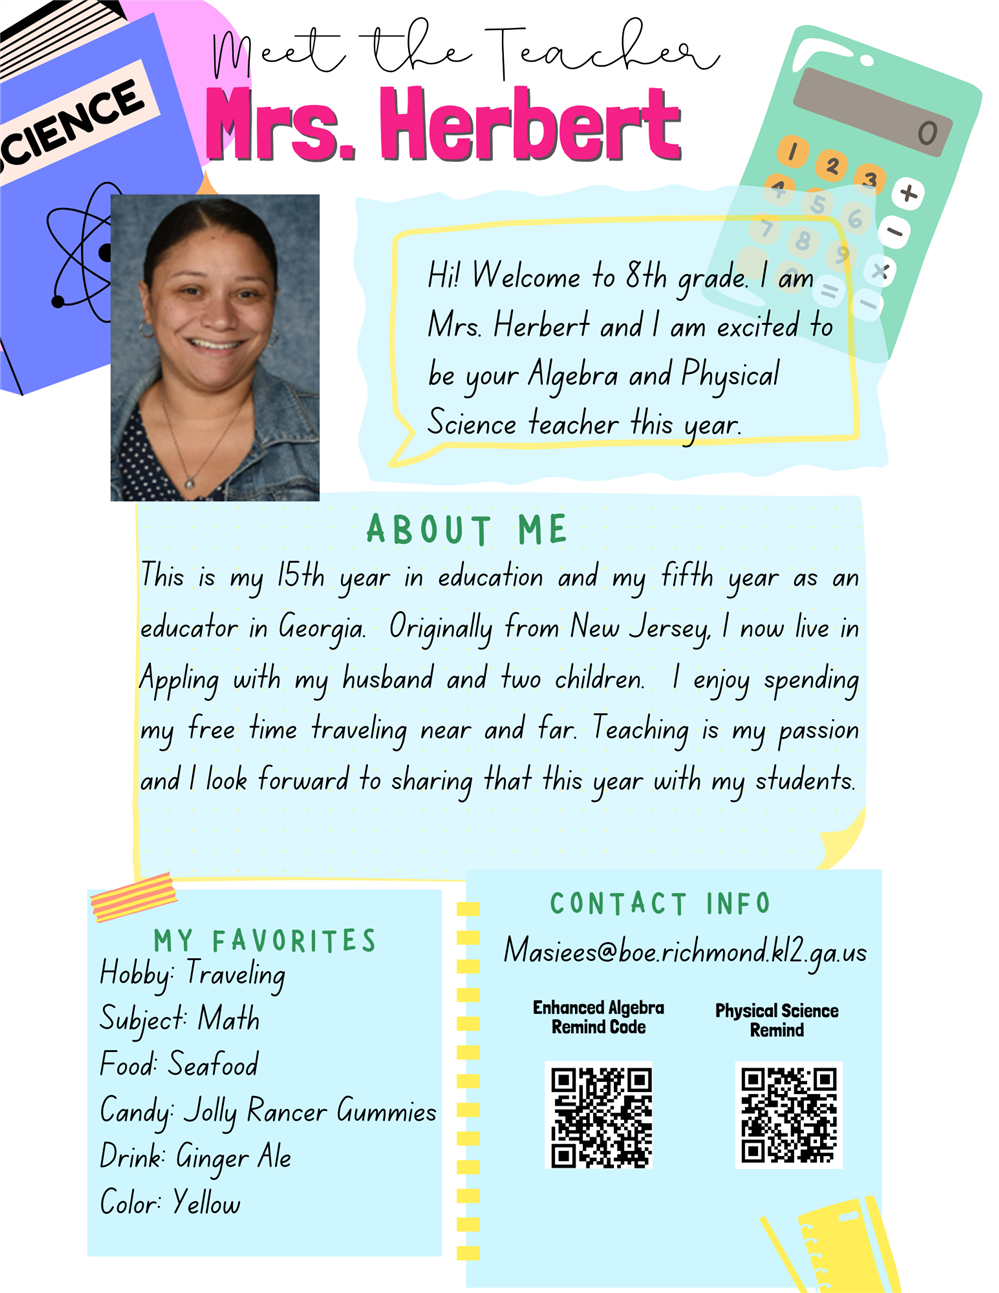 Meet the Teacher
Mrs. Herbert
SCIENCE
0
1 2 3 +
4 5 6 -
7 8 9 x
= -
Hi! Welcome to 8th grade. I am
Mrs. Herbert and I am excited to
be your Algebra and Physical
Science teacher this year.
ABOUT ME
This is my 15th year in education and my fifth year as an
educator in Georgia. Originally from New Jersey, I now live in
Appling with my husband and two children. I enjoy spending
my free time traveling near and far. Teaching is my passion
and I look forward to sharing that this year with my students.
MY FAVORITES
Hobby: Traveling
Subject: Math
Food: Seafood
Candy: Jolly Rancer Gummies
Drink: Ginger Ale
Color: Yellow
CONTACT INFO
Masiees@boe.richmond.k12.ga.us
Enhanced Algebra
Remind Code
Physical Science
Remind